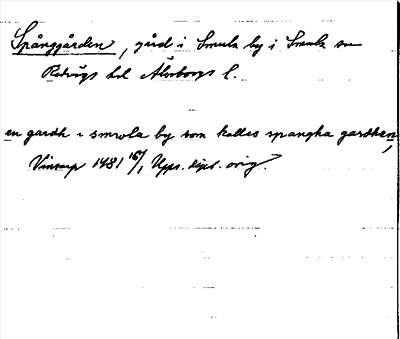 Spånggården, gård i Smula by i Smula sn
Redvägs hd Älvsborgs l.
en gardh i smwla by som kalles spangha gardhen,
Vinsarp 1481 16/1, Upps. dipl. orig.